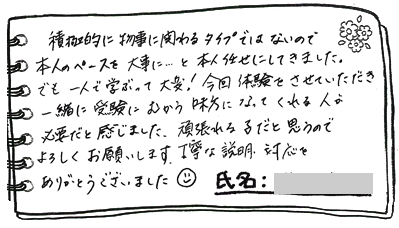 積極的に物事に関わるタイプではないので
本人のペースを大事に…と本人任せにしてきました。
でも一人で学ぶって大変！今回体験をさせていただき
一緒に受験にむかう味方になってくれる人が
必要だと感じました。頑張れる子だと思うので
よろしくお願いします。丁寧な説明、対応を
ありがとうございました
氏名：